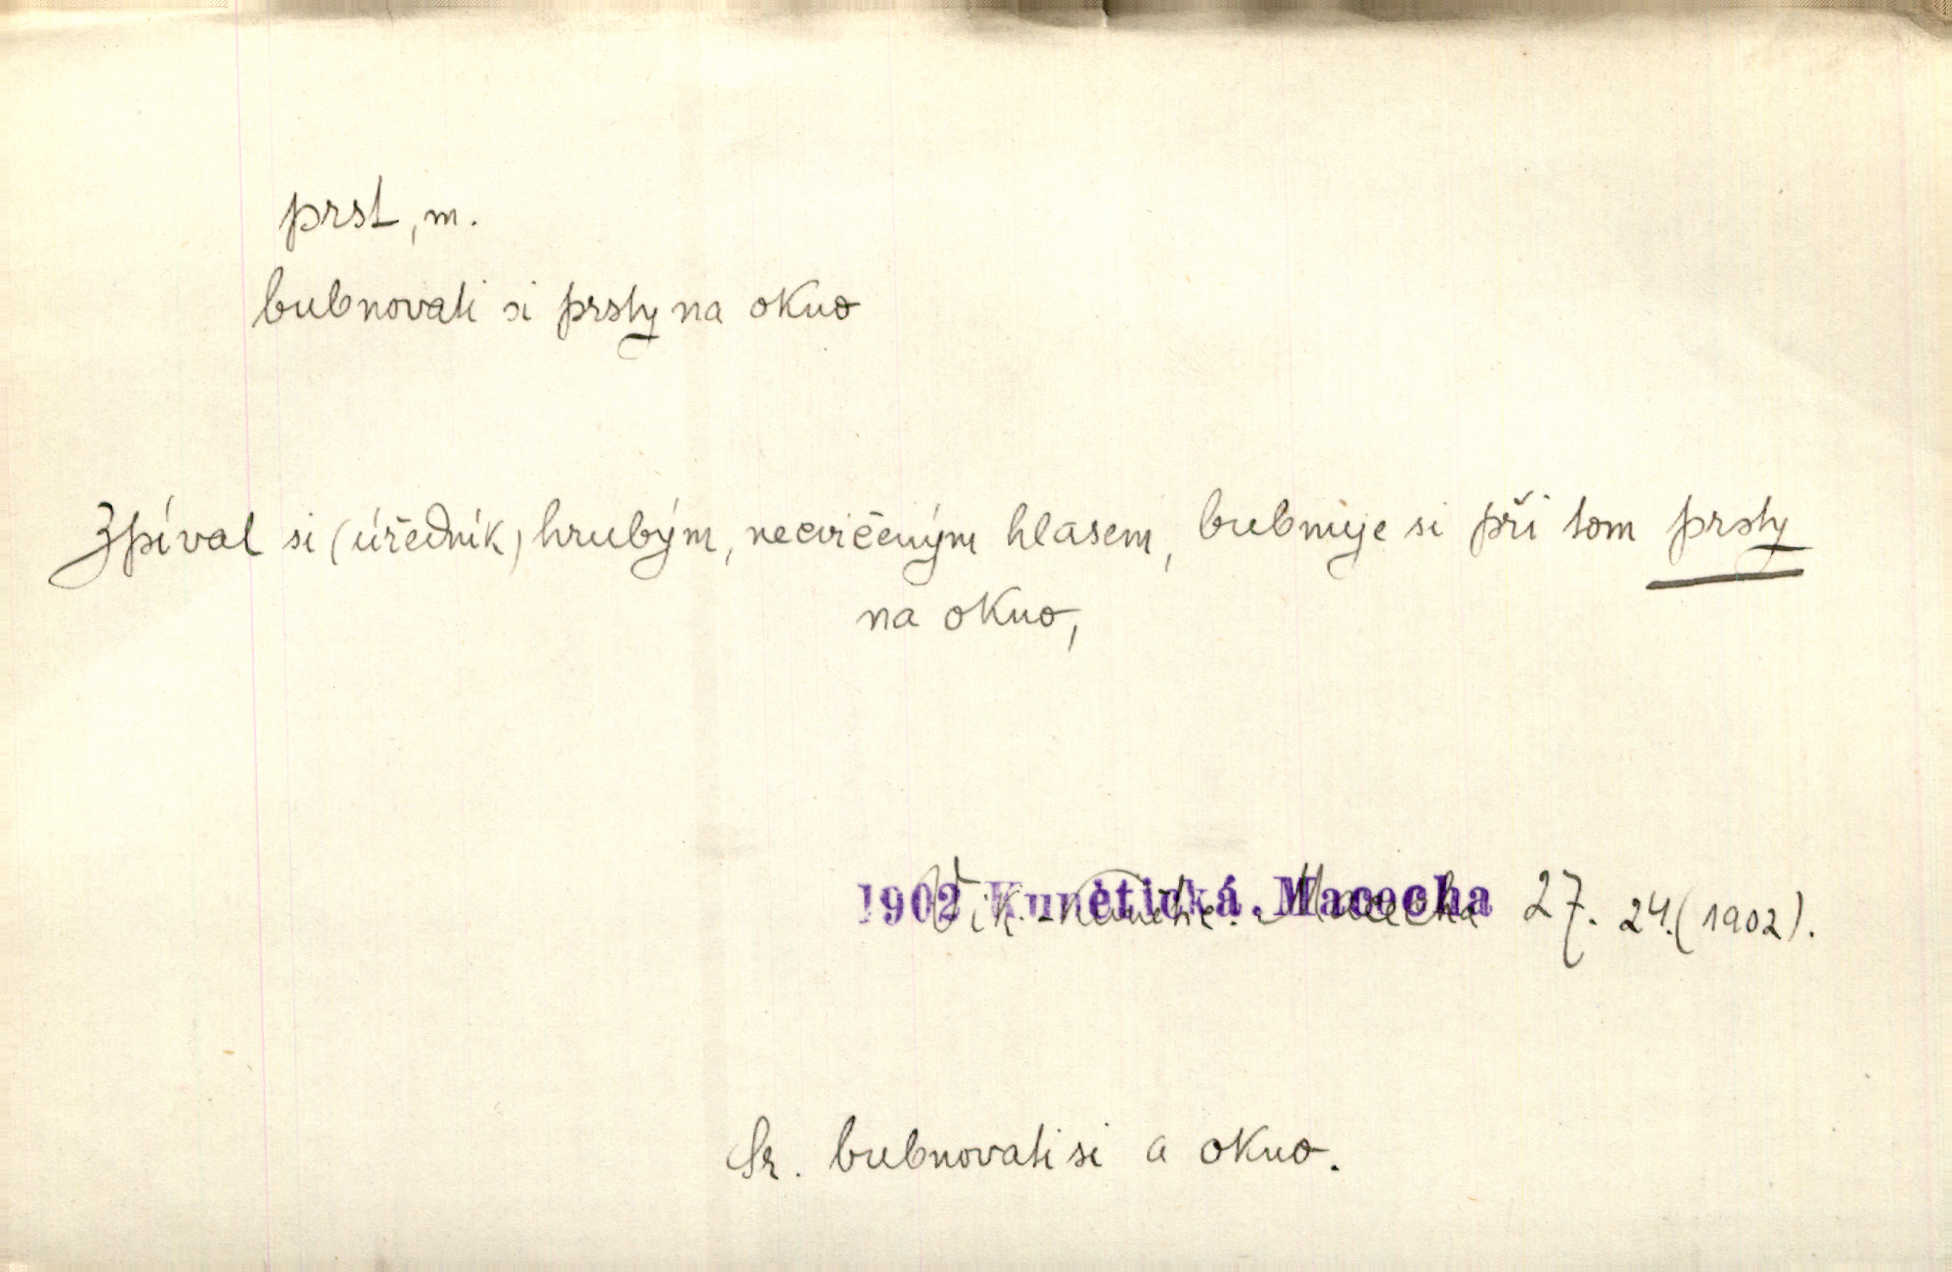 prst, m.
bubnovati si prsty na okno
Zpíval si (úředník) hrubým, necvičeným hlasem, bubnuje si při tom prsty
na okno,
1902 Kunětická, Macecha 27. 24. (1902).
Sr. bubnovati si a okno.